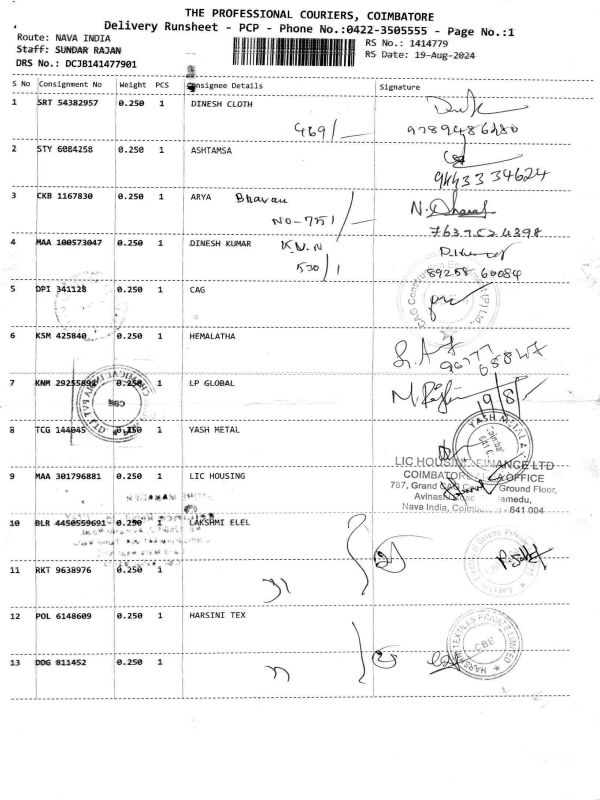 THE PROFESSIONAL COURIERS, COIMBATORE
Delivery Runsheet - PCP - Phone No.:0422-3505555 - Page No.:1
Route: NAVA INDIA
RS No.: 1414779
Staff: SUNDAR RAJAN
RS Date: 19-Aug-2024
DRS No.: DCJB141477901
S No Consignment No Weight PCS Consignee Details Signature
1 SRT 54382957 0.250 1 DINESH CLOTH
469/
2 STY 6084258 0.250 1 ASHTAMSA
94433 34624
3 CKB 1167830 0.250 1 ARYA Bhavan
NO-751
4 MAA 100573047 0.250 1 DINESH KUMAR K.V.N
530/1
89258 60084
5 DPI 341128 0.250 1 CAG
6 KSM 425840 0.250 1 HEMALATHA
7 KNM 29255892 0.250 1 LP GLOBAL
19/8/
8 TCG 144045 0.150 1 YASH METAL
YASH METAL
9 MAA 301796881 0.250 1 LIC HOUSING
LIC HOUSING FINANCE LTD
COIMBATORE OFFICE
787, Grand Ground Floor,
Nava India, 641 004
10 BLR 4450559691 0.250 1 LAKSHMI ELEL
11 RKT 9638976 0.250 1
12 POL 6148609 0.250 1 HARSINI TEX
HARSINI TEXTILES PRIVATE LIMITED
CBE
13 DDG 811452 0.250 1